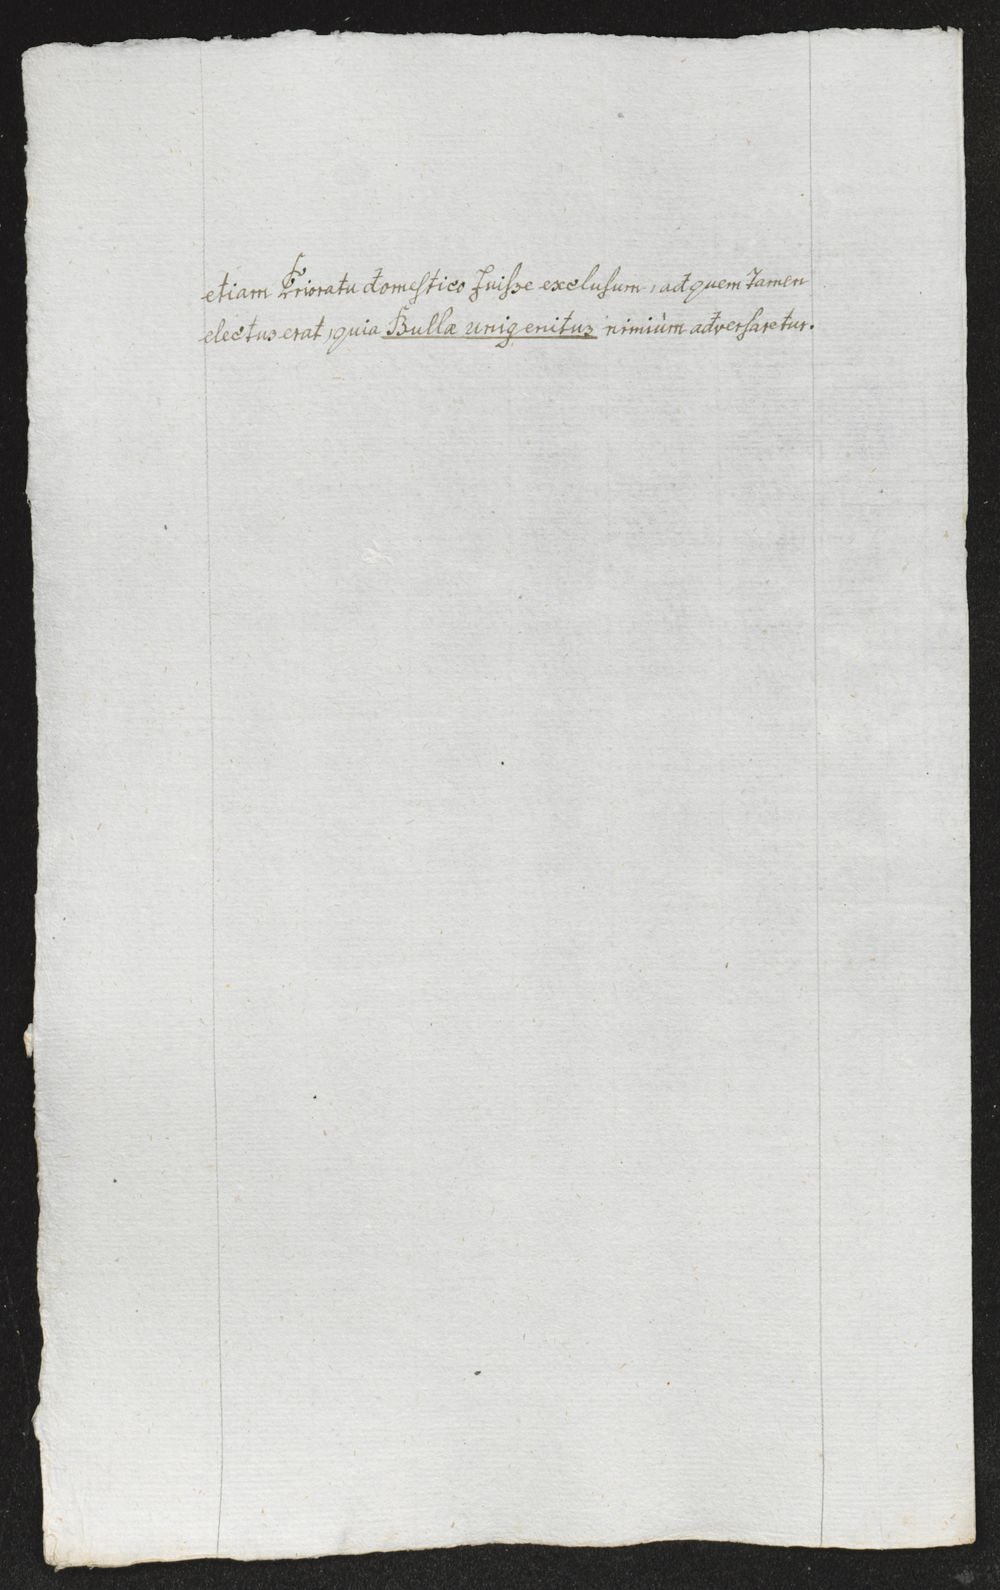 etiam Prioratu domestico fuisse exclusum, ad quem tamen
electus erat, quia Bullæ unigenitus nimiùm adversaretur.